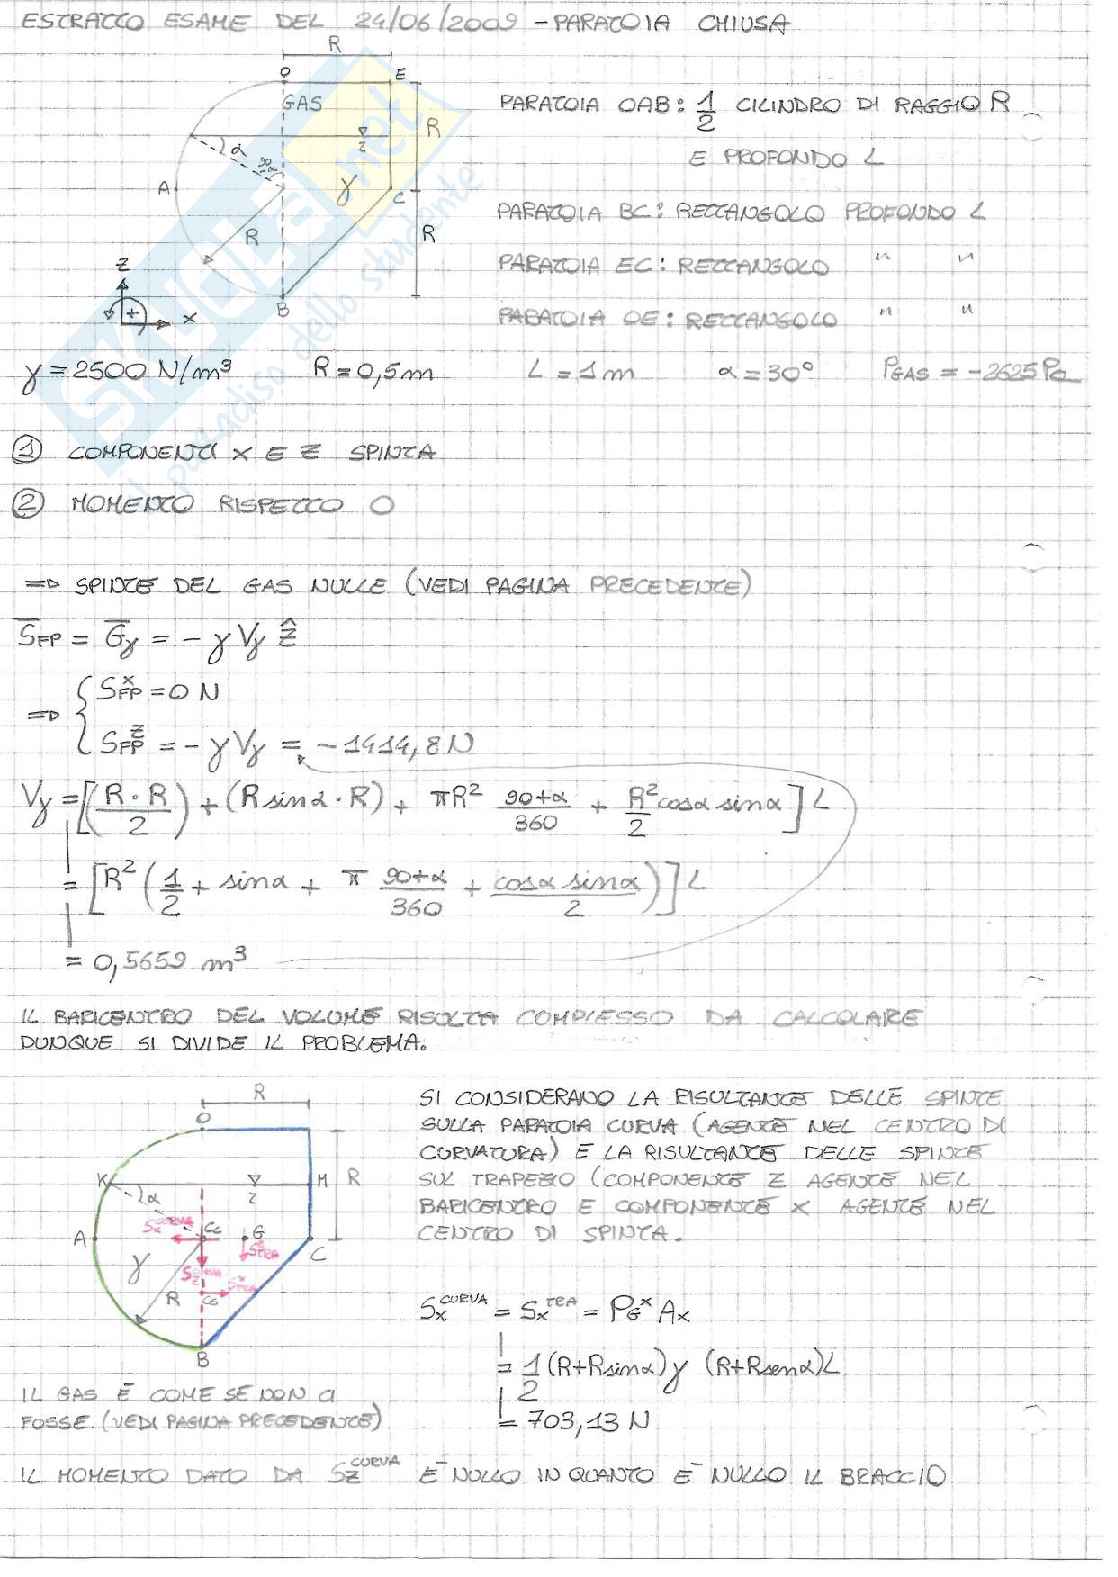 ESTRATTO ESAME DEL 24/06/2009 - PARATOIA CHIUSA
R
O E
GAS
R
PARATOIA OAB: 1/2 CILINDRO DI RAGGIO R
E PROFONDO L
α
A
γ
C
R
R
B
Z
+
X
PARATOIA BC: RETTANGOLO PROFONDO L
PARATOIA EC: RETTANGOLO " "
PARATOIA OE: RETTANGOLO " "
γ = 2500 N/m³ R = 0,5m L = 1m α = 30° PGAS = -2625 Pa
① COMPONENTI X E Z SPINTA
② MOMENTO RISPETTO O
⇒ SPINTE DEL GAS NULLE (VEDI PAGINA PRECEDENTE)
S̅FP = G̅γ = - γ Vγ ẑ
⇒ { SFP^x = 0 N
SFP^z = - γ Vγ = - 1414,8 N
Vγ = [(R·R/2) + (R sinα · R) + πR² (90+α)/360 + R²/2 cosα sinα] L
= [R² (1/2 + sinα + π (90+α)/360 + (cosα sinα)/2)] L
= 0,5659 m³
IL BARICENTRO DEL VOLUME RISULTA COMPLESSO DA CALCOLARE
DUNQUE SI DIVIDE IL PROBLEMA.
R
O
K
α
M
R
A
Sx^CURVA
Cc
G
C
γ
Sz^CURVA
R
B
SI CONSIDERANO LA RISULTANTE DELLE SPINTE
SULLA PARATOIA CURVA (AGENTE NEL CENTRO DI
CURVATURA) E LA RISULTANTE DELLE SPINTE
SUL TRAPEZIO (COMPONENTE Z AGENTE NEL
BARICENTRO E COMPONENTE X AGENTE NEL
CENTRO DI SPINTA.
Sx^CURVA = Sx^TRA = PG^x Ax
= 1/2 (R+Rsinα) γ (R+Rsenα) L
= 703,13 N
IL GAS È COME SE NON CI
FOSSE (VEDI PAGINA PRECEDENTE)
IL MOMENTO DATO DA Sz^CURVA È NULLO IN QUANTO È NULLO IL BRACCIO
SKUOLA.net
il paradiso dello studente